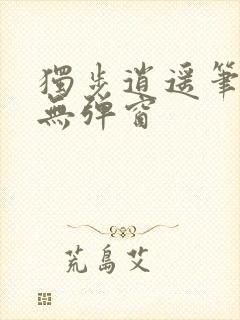 獨步逍遥筆
無彈窗
荒島艾